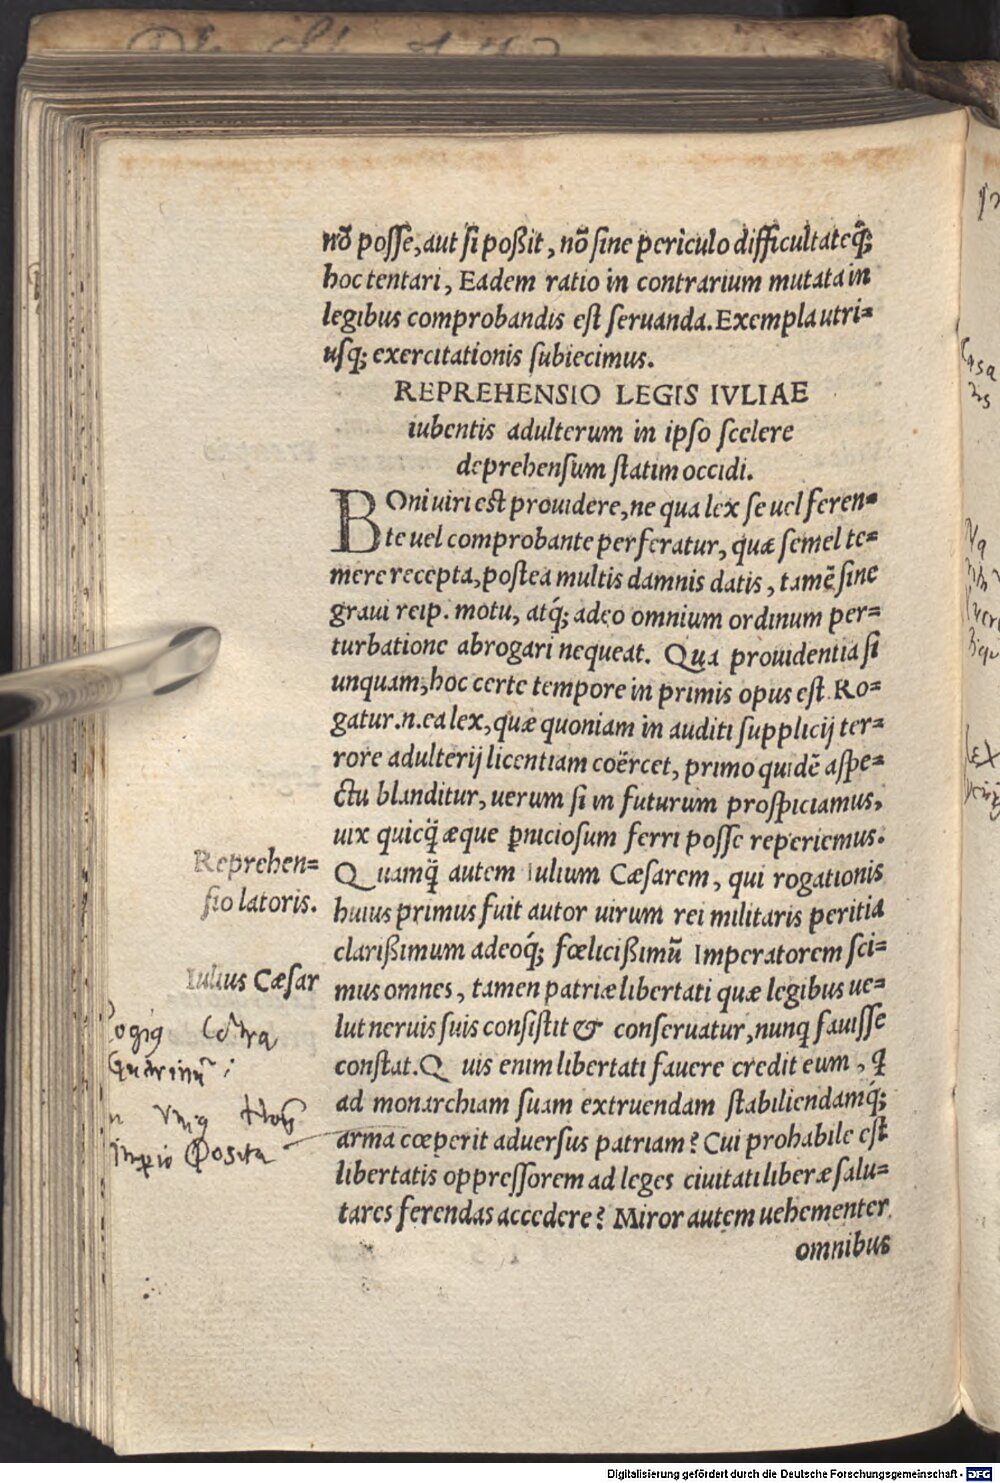 nõ posse, aut si poßit, nõ sine periculo difficultateq́;
hoc tentari, Eadem ratio in contrarium mutata in
legibus comprobandis est seruanda. Exempla utri=
usq; exercitationis subiecimus.
REPREHENSIO LEGIS IVLIAE
iubentis adulterum in ipso scelere
deprehensum statim occidi.
BOni uiri est prouidere, ne qua lex se uel feren=
te uel comprobante perferatur, quæ semel te=
mere recepta, postea multis damnis datis, tamẽ sine
graui reip. motu, atq́; adeo omnium ordinum per=
turbatione abrogari nequeat. Qua prouidentia si
unquam, hoc certe tempore in primis opus est. Ro=
gatur.n.ea lex, quæ quoniam in auditi supplicij ter=
rore adulterij licentiam coërcet, primo quidẽ aspe=
ctu blanditur, uerum si in futurum prospiciamus,
uix quicq̃ æque ꝑniciosum ferri posse reperiemus.
Quamq̃ autem Iulium Cæsarem, qui rogationis
Reprehen=
sio latoris.
huius primus fuit autor uirum rei militaris peritia
clarißimum adeoq́; fœlicißimũ Imperatorem sci=
Iulius Cæsar
mus omnes, tamen patriæ libertati quæ legibus ue=
lut neruis suis consistit & conseruatur, nunq̃ fauisse
constat. Quis enim libertati fauere credit eum, q̃
ad monarchiam suam extruendam stabiliendamq́;
arma cœperit aduersus patriam? Cui probabile est
libertatis oppressorem ad leges ciuitati liberæ salu=
tares ferendas accedere? Miror autem uehementer
omnibus
Posita
Casa
Lex
Digitalisierung gefördert durch die Deutsche Forschungsgemeinschaft - DFG